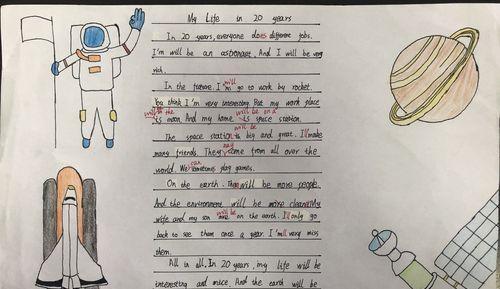 My Life in 20 years
In 20 years, everyone does different jobs.
I'm will be an astronaut. And I will be very
rich.
In the future. I'm will go to work by rocket.
You think I'm very interesting. But my work place
will be the is moon. And my home will be on a is space station.
The space station will be is big and great. I'll make
many friends. They may come from all over the
world. We can sometimes play games.
On the earth. There will be more people.
And the environment will be more clean. My
wife and my son will be on the earth. I'll only go
back to see them once a year. I'll very miss
them.
All in all. In 20 years, my life will be
interesting and nice. And the earth will be